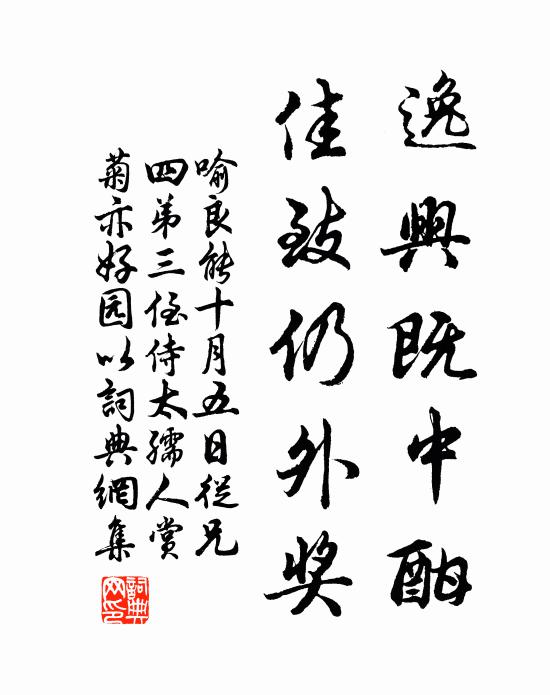 逸興既中酣
佳致仍外奖
喻良能十月五日從兄
四弟三侄侍太孺人賞
菊亦好园以詞典網集
詞典網印